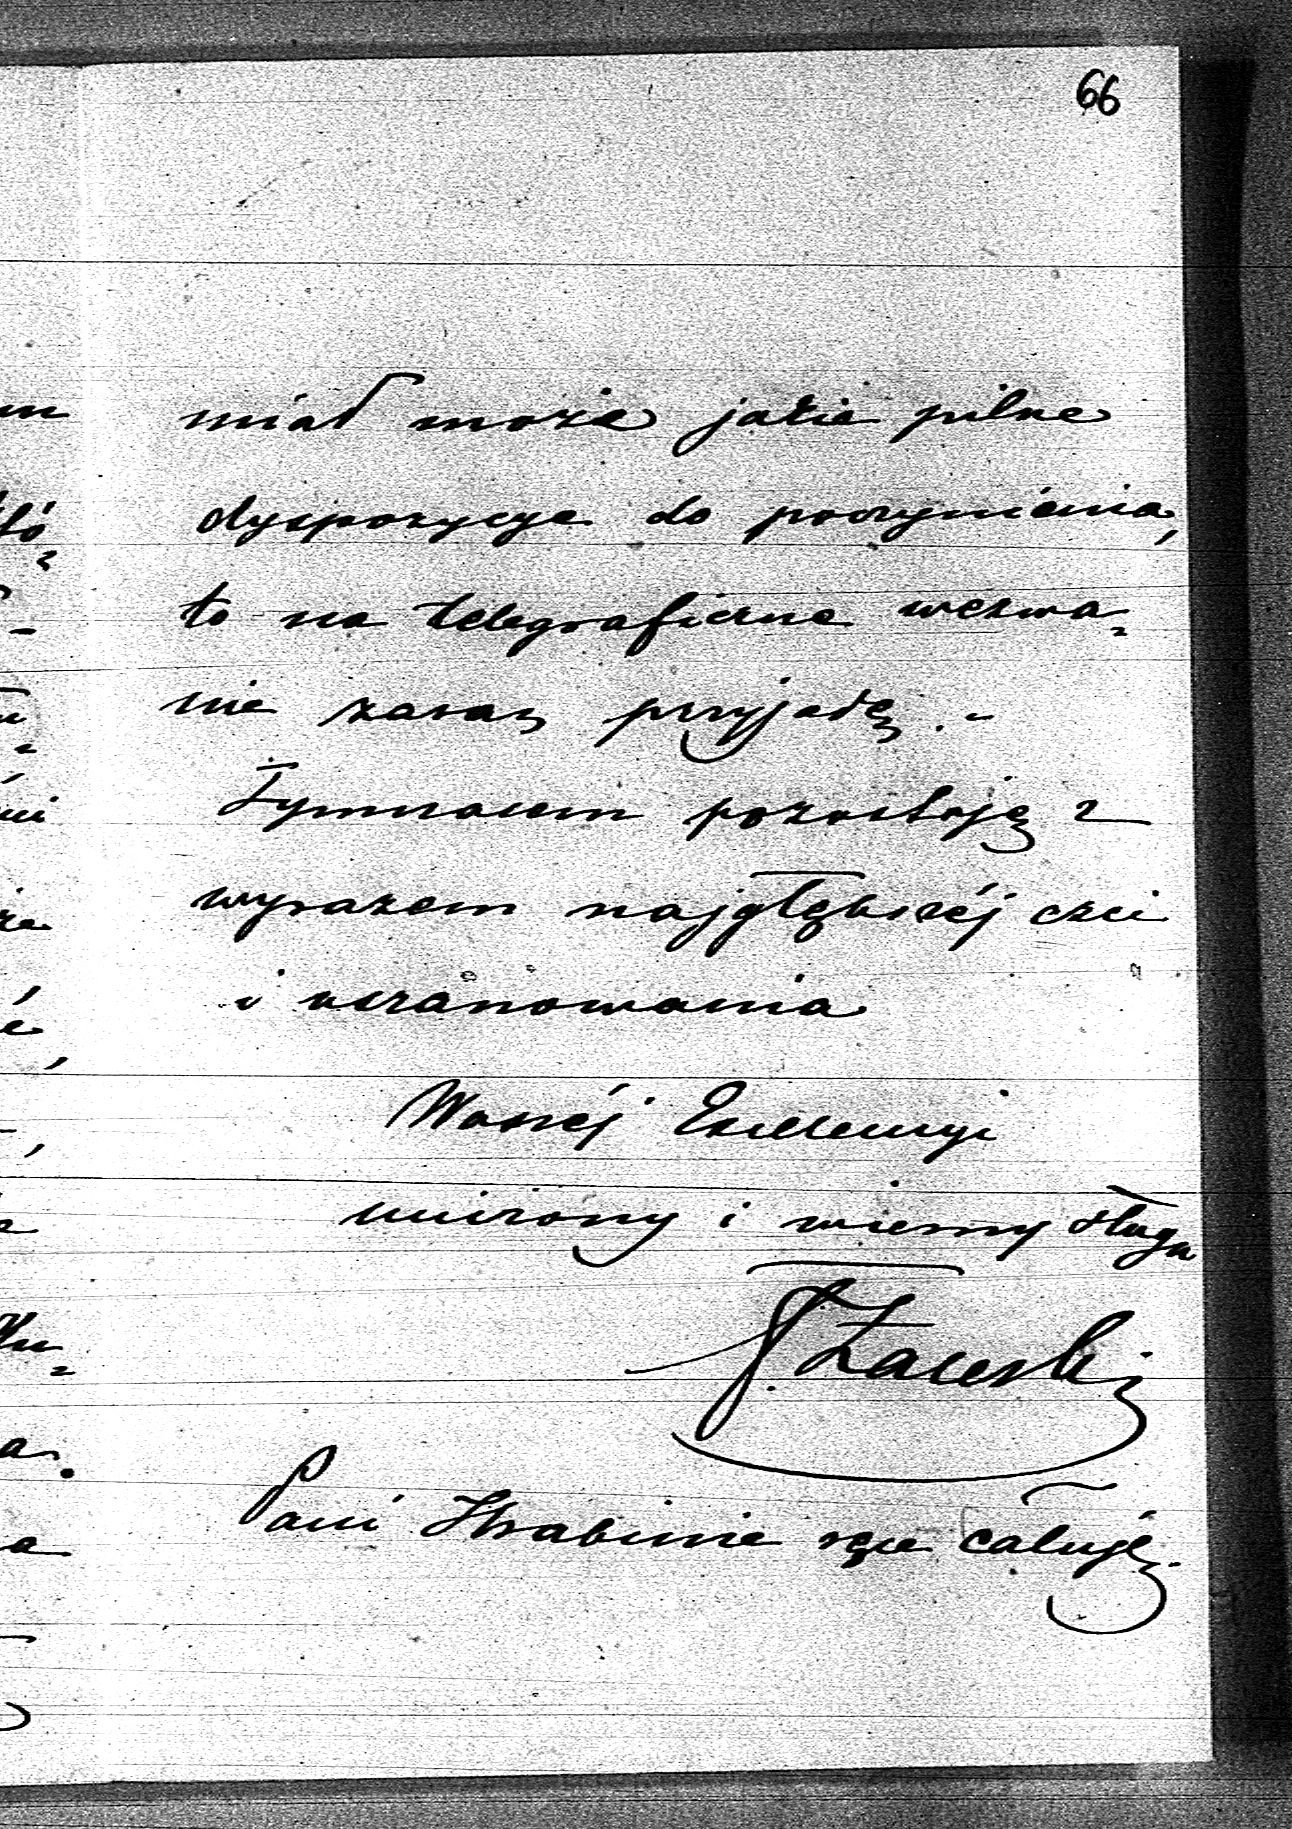 66
miał może jakie pilne
dyspozycye do poczynienia,
to na telegraficzne wezwa=
nie zaraz przyjadę. -
Tymczasem pozostaję z
wyrazem najgłębszéj czci
i uszanowania
Waszéj Excellencyi
uniżony i wierny sługa
Pani Hrabinie ręce całuję.